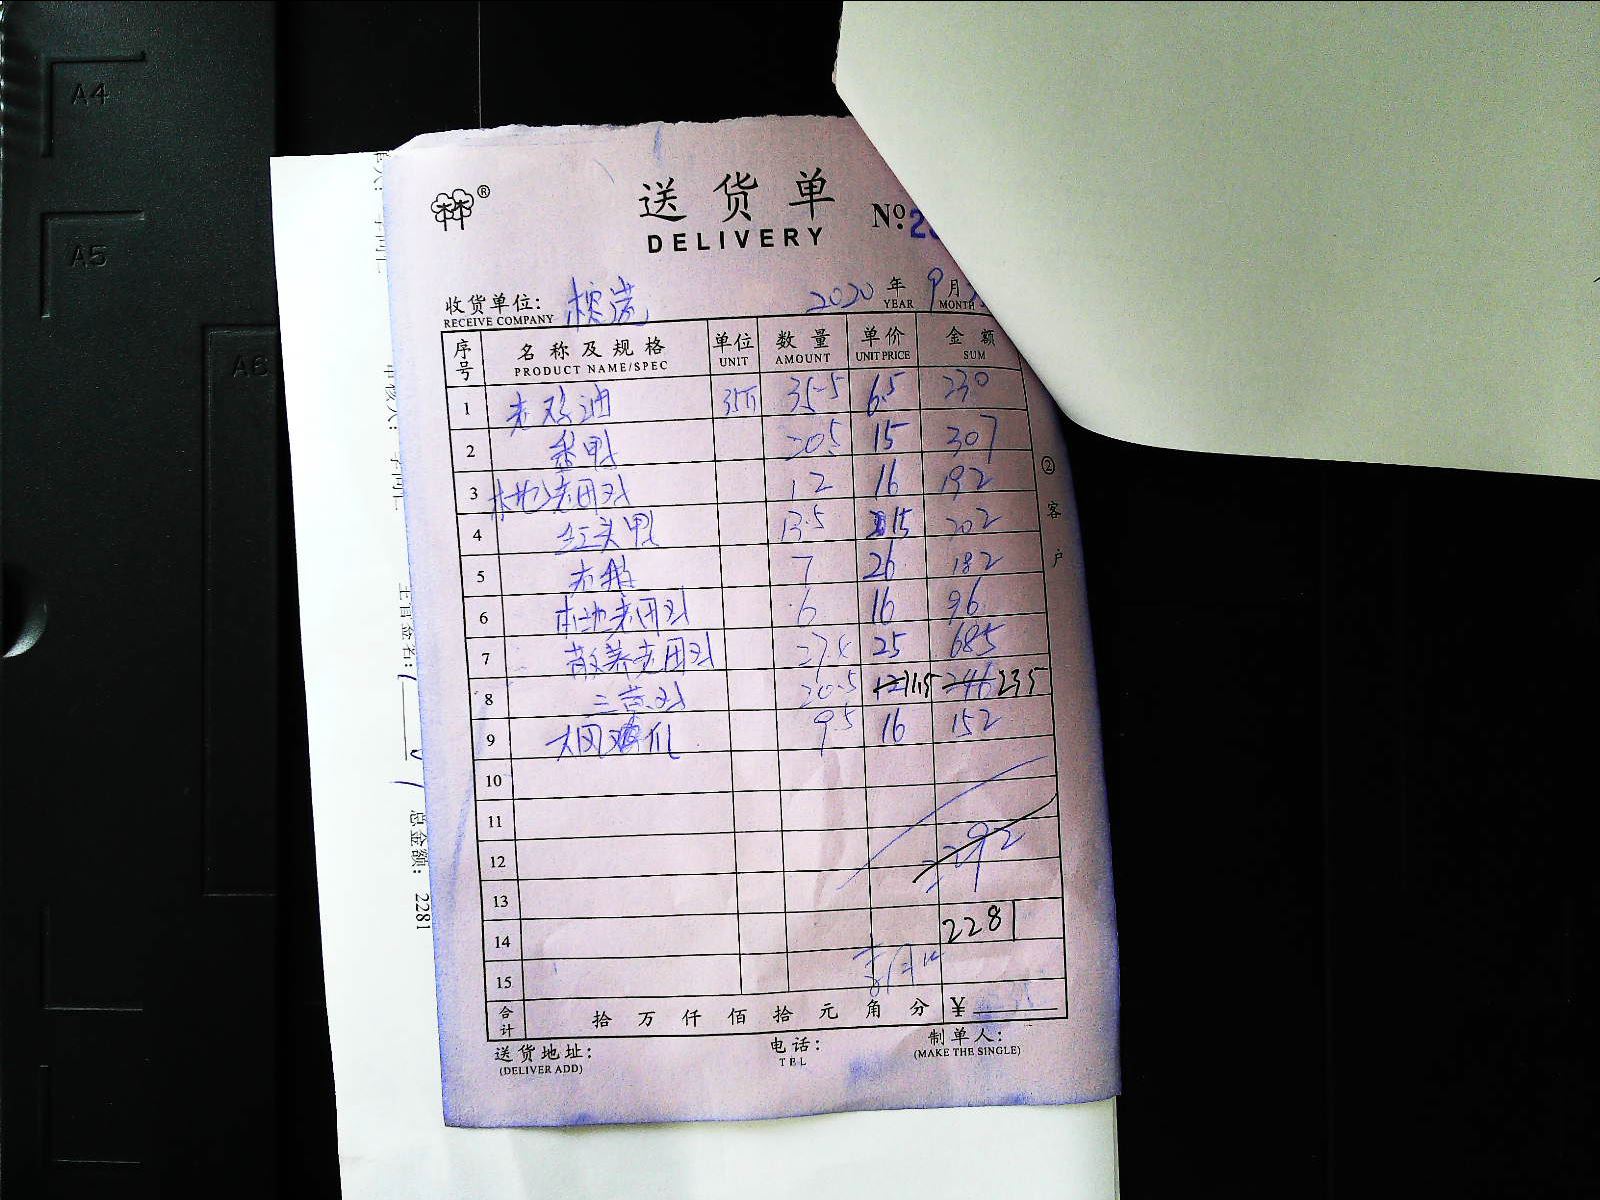 A4
A5
A6
®
送货单
DELIVERY
No. 2
收货单位:
RECEIVE COMPANY
2020 年 9 月
YEAR MONTH
序号 名称及规格 单位 数量 单价 金额
PRODUCT NAME/SPEC UNIT AMOUNT UNIT PRICE SUM
1 老鸡油 35.5 6.5 230
2 番鸭 20.5 15 307
3 本地老田鸡 12 16 192
4 红头鸭 13.5 15 202
5 7 26 182
6 本地老田鸡 6 16 96
7 散养老田鸡 27.4 25 685
8 三黄鸡 20.5 12 11.5 246 235
9 9.5 16 152
10
11
12 2292
13
14 2281
15
合计 拾 万 仟 佰 拾 元 角 分 ¥
送货地址:
(DELIVER ADD)
电话:
TEL
制单人:
(MAKE THE SINGLE)
② 客户
主管签名:
总金额: 2281